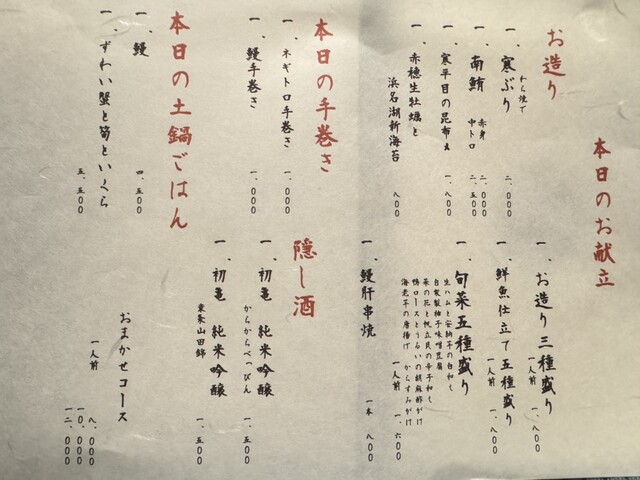 本日のお献立
お造り
一、寒ぶり わら焼で 二、000
一、南鮪 赤身 二、000
中トロ 二、五00
一、寒平目の昆布〆 一、八00
一、赤穂生牡蠣と
浜名湖新海苔 八00
一、お造り三種盛り
一人前 一、八00
一、鮮魚仕立て五種盛り
一人前 一、八00
一、旬菜五種盛り
生ハムと安納芋の白和し
自家製柚子味噌豆腐
菜の花と帆立貝の辛子和し
鴨ロースとうるいの胡麻酢がけ
海老芋の唐揚げ からすみがけ
一人前 一、六00
一、鰻肝串焼
一本 八00
本日の手巻き
一、ネギトロ手巻き 一、000
一、鰻手巻き 一、000
隠し酒
一、初亀 純米吟醸
からからべっぴん 一、五00
一、初亀 純米吟醸
東条山田錦 一、五00
本日の土鍋ごはん
一、鰻 四、五00
一、ずわい蟹と筍といくら
五、五00
おまかせコース
一人前 八、000
一0、000
一二、000